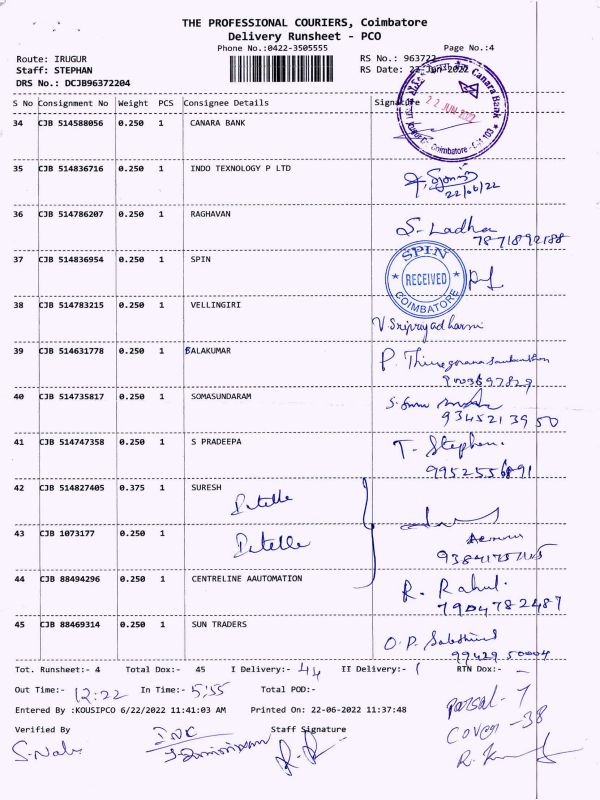 THE PROFESSIONAL COURIERS, Coimbatore
Delivery Runsheet - PCO
Phone No.:0422-3505555
Page No.:4
Route: IRUGUR
RS No.: 963722
Staff: STEPHAN
RS Date: 22-Jun-2022
DRS No.: DCJB96372204
S No Consignment No Weight PCS Consignee Details Signature
Canara Bank
22 JUN 2022
Coimbatore - 641 103
34 CJB 514588056 0.250 1 CANARA BANK
35 CJB 514836716 0.250 1 INDO TEXNOLOGY P LTD
22/06/22
36 CJB 514786207 0.250 1 RAGHAVAN
S. Ladha
7871892188
37 CJB 514836954 0.250 1 SPIN
SPIN
RECEIVED
COIMBATORE
38 CJB 514783215 0.250 1 VELLINGIRI
39 CJB 514631778 0.250 1 BALAKUMAR
9003697829
40 CJB 514735817 0.250 1 SOMASUNDARAM
9345213950
41 CJB 514747358 0.250 1 S PRADEEPA
T. Stephen.
9952556891
42 CJB 514827405 0.375 1 SURESH
43 CJB 1073177 0.250 1
44 CJB 88494296 0.250 1 CENTRELINE AAUTOMATION
R. Rahul.
7904782487
45 CJB 88469314 0.250 1 SUN TRADERS
9942950004
Tot. Runsheet:- 4 Total Dox:- 45 I Delivery:- 44 II Delivery:- 1 RTN Dox:-
Out Time:- 12:22 In Time:- 5:55 Total POD:-
Entered By :KOUSIPCO 6/22/2022 11:41:03 AM Printed On: 22-06-2022 11:37:48
Parsal - 7
Cover - 38
Verified By Staff Signature